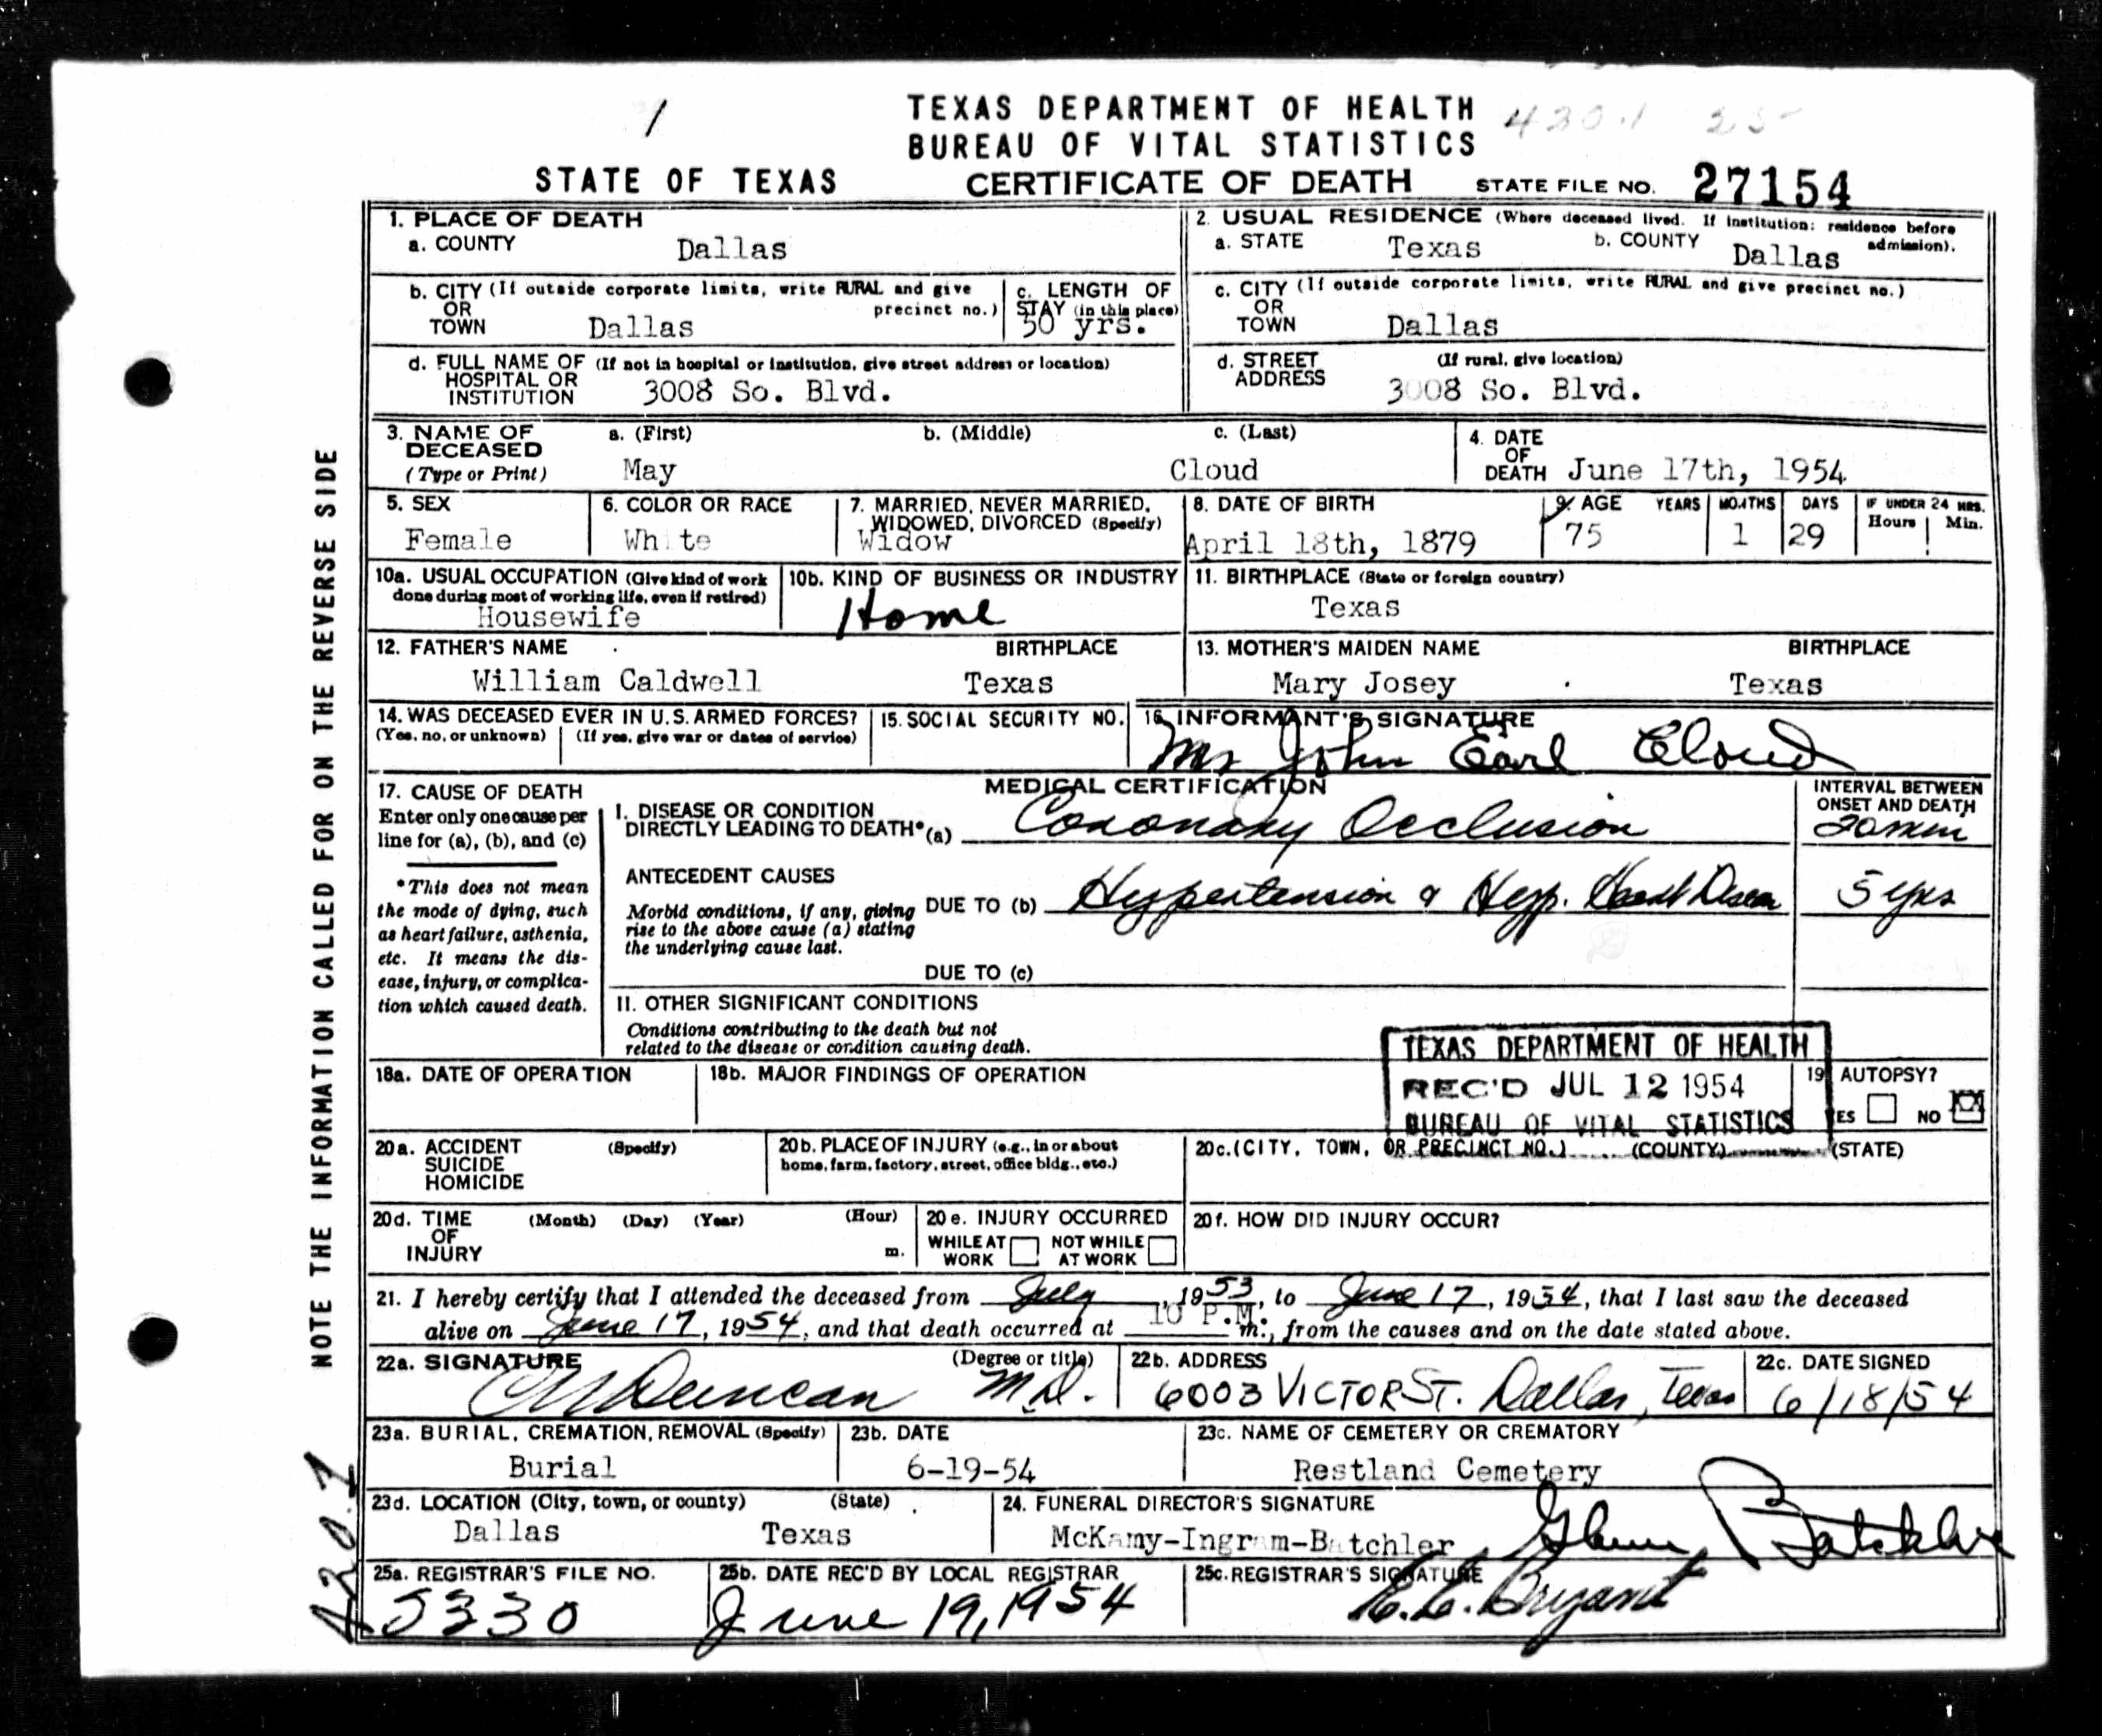 1
TEXAS DEPARTMENT OF HEALTH
BUREAU OF VITAL STATISTICS
420.1 25
STATE OF TEXAS
CERTIFICATE OF DEATH
STATE FILE NO. 27154
NOTE THE INFORMATION CALLED FOR ON THE REVERSE SIDE
420.1
1. PLACE OF DEATH
a. COUNTY
Dallas
2. USUAL RESIDENCE (Where deceased lived. If institution: residence before admission).
a. STATE Texas b. COUNTY Dallas
b. CITY (If outside corporate limits, write RURAL and give precinct no.)
OR
TOWN Dallas
c. LENGTH OF
STAY (in this place)
50 yrs.
c. CITY (If outside corporate limits, write RURAL and give precinct no.)
OR
TOWN Dallas
d. FULL NAME OF (If not in hospital or institution, give street address or location)
HOSPITAL OR
INSTITUTION 3008 So. Blvd.
d. STREET (If rural, give location)
ADDRESS 3008 So. Blvd.
3. NAME OF DECEASED
(Type or Print)
a. (First) b. (Middle) c. (Last)
May Cloud
4. DATE
OF
DEATH June 17th, 1954
5. SEX
Female
6. COLOR OR RACE
White
7. MARRIED, NEVER MARRIED,
WIDOWED, DIVORCED (Specify)
Widow
8. DATE OF BIRTH
April 18th, 1879
9. AGE YEARS MONTHS DAYS IF UNDER 24 HRS.
Hours Min.
75 1 29
10a. USUAL OCCUPATION (Give kind of work
done during most of working life, even if retired)
Housewife
10b. KIND OF BUSINESS OR INDUSTRY
Home
11. BIRTHPLACE (State or foreign country)
Texas
12. FATHER'S NAME BIRTHPLACE
William Caldwell Texas
13. MOTHER'S MAIDEN NAME BIRTHPLACE
Mary Josey Texas
14. WAS DECEASED EVER IN U.S. ARMED FORCES?
(Yes, no, or unknown) (If yes, give war or dates of service)
15. SOCIAL SECURITY NO.
16. INFORMANT'S SIGNATURE
John Earl Cloud
17. CAUSE OF DEATH
Enter only one cause per
line for (a), (b), and (c)
*This does not mean
the mode of dying, such
as heart failure, asthenia,
etc. It means the dis-
ease, injury, or complica-
tion which caused death.
MEDICAL CERTIFICATION
INTERVAL BETWEEN
ONSET AND DEATH
I. DISEASE OR CONDITION
DIRECTLY LEADING TO DEATH* (a) Coronary Occlusion 20 min
ANTECEDENT CAUSES
Morbid conditions, if any, giving
rise to the above cause (a) stating
the underlying cause last.
DUE TO (b) Hypertension & Hyp. Heart Disease 5 yrs
DUE TO (c)
II. OTHER SIGNIFICANT CONDITIONS
Conditions contributing to the death but not
related to the disease or condition causing death.
TEXAS DEPARTMENT OF HEALTH
REC'D JUL 12 1954
BUREAU OF VITAL STATISTICS
18a. DATE OF OPERATION
18b. MAJOR FINDINGS OF OPERATION
19. AUTOPSY?
YES NO
20a. ACCIDENT (Specify)
SUICIDE
HOMICIDE
20b. PLACE OF INJURY (e.g., in or about
home, farm, factory, street, office bldg., etc.)
20c. (CITY, TOWN, OR PRECINCT NO.) (COUNTY) (STATE)
20d. TIME (Month) (Day) (Year) (Hour)
OF
INJURY m.
20e. INJURY OCCURRED
WHILE AT WORK NOT WHILE AT WORK
20f. HOW DID INJURY OCCUR?
21. I hereby certify that I attended the deceased from July, 1953, to June 17, 1954, that I last saw the deceased
alive on June 17, 1954, and that death occurred at 10 P.M. m., from the causes and on the date stated above.
22a. SIGNATURE (Degree or title)
Duncan M.D.
22b. ADDRESS
6003 VICTOR ST. Dallas, Texas
22c. DATE SIGNED
6/18/54
23a. BURIAL, CREMATION, REMOVAL (Specify)
Burial
23b. DATE
6-19-54
23c. NAME OF CEMETERY OR CREMATORY
Restland Cemetery
23d. LOCATION (City, town, or county) (State)
Dallas Texas
24. FUNERAL DIRECTOR'S SIGNATURE
McKamy-Ingram-Batchler Glenn Batchler
25a. REGISTRAR'S FILE NO.
5330
25b. DATE REC'D BY LOCAL REGISTRAR
June 19, 1954
25c. REGISTRAR'S SIGNATURE
E.C. Bryant